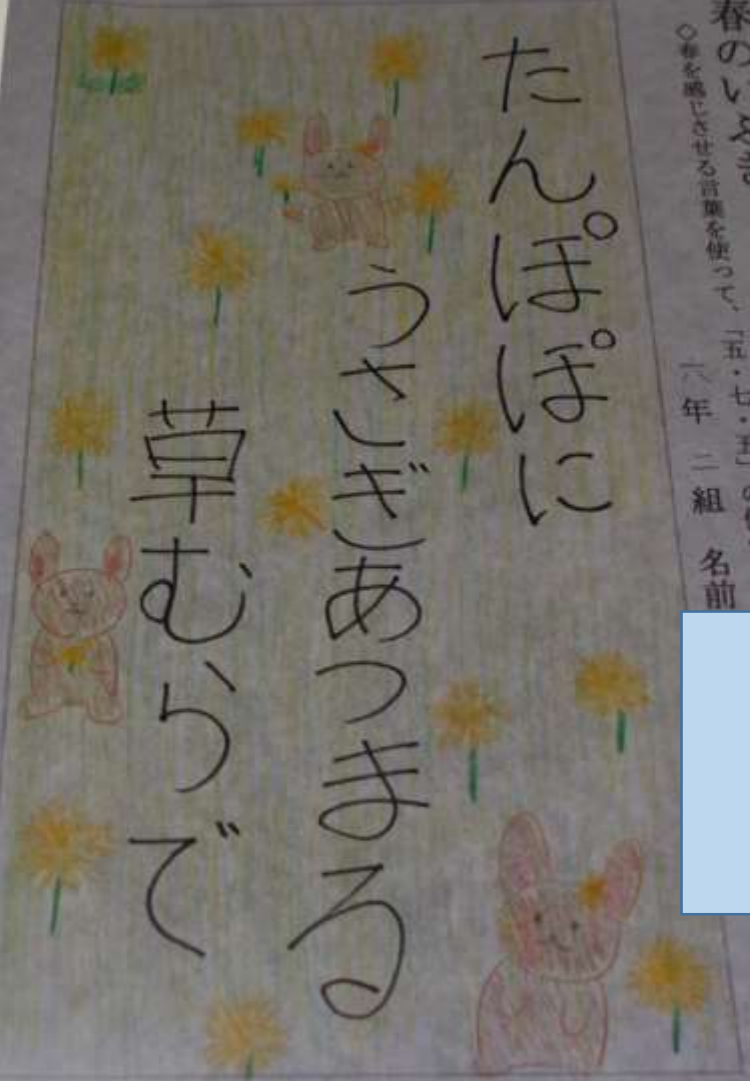 春のいぶき
◇春を感じさせる言葉を使って、「五・七・五」の
六年 二組 名前
たんぽぽに
うさぎあつまる
草むらで